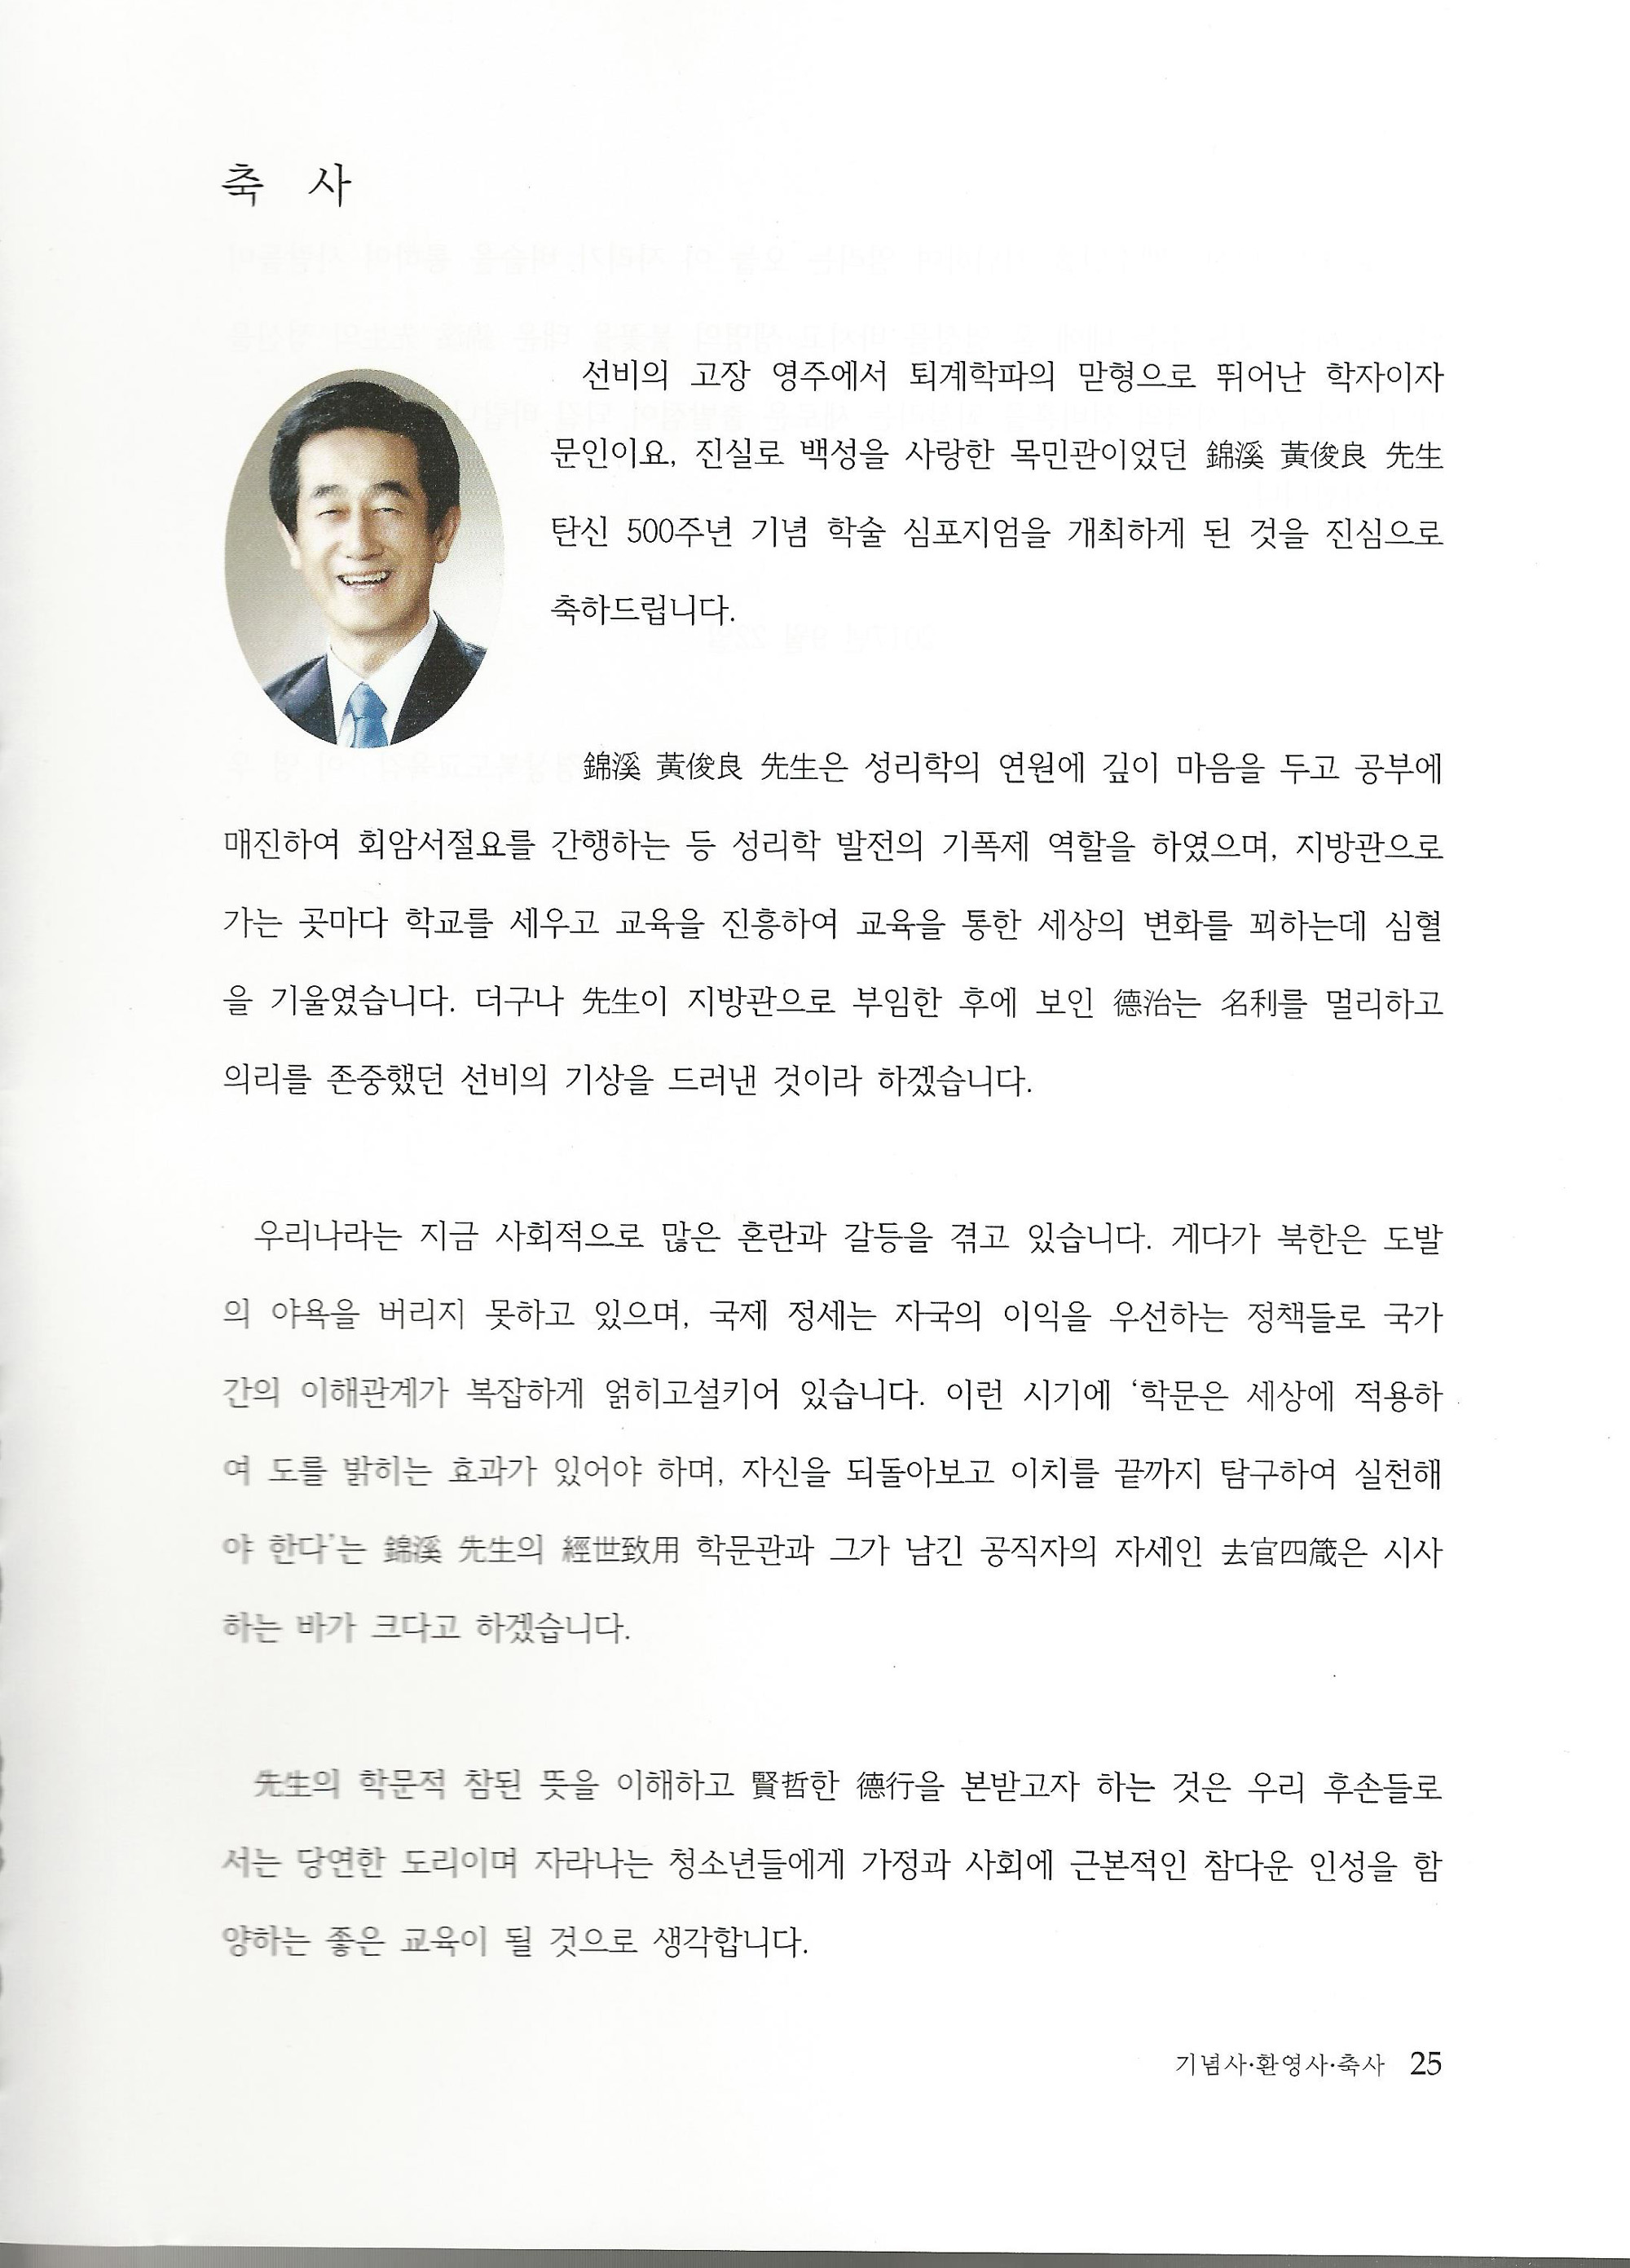 축 사
선비의 고장 영주에서 퇴계학파의 맏형으로 뛰어난 학자이자
문인이요, 진실로 백성을 사랑한 목민관이었던 錦溪 黃俊良 先生
탄신 500주년 기념 학술 심포지엄을 개최하게 된 것을 진심으로
축하드립니다.
錦溪 黃俊良 先生은 성리학의 연원에 깊이 마음을 두고 공부에
매진하여 회암서절요를 간행하는 등 성리학 발전의 기폭제 역할을 하였으며, 지방관으로
가는 곳마다 학교를 세우고 교육을 진흥하여 교육을 통한 세상의 변화를 꾀하는데 심혈
을 기울였습니다. 더구나 先生이 지방관으로 부임한 후에 보인 德治는 名利를 멀리하고
의리를 존중했던 선비의 기상을 드러낸 것이라 하겠습니다.
우리나라는 지금 사회적으로 많은 혼란과 갈등을 겪고 있습니다. 게다가 북한은 도발
의 야욕을 버리지 못하고 있으며, 국제 정세는 자국의 이익을 우선하는 정책들로 국가
간의 이해관계가 복잡하게 얽히고설키어 있습니다. 이런 시기에 ‘학문은 세상에 적용하
여 도를 밝히는 효과가 있어야 하며, 자신을 되돌아보고 이치를 끝까지 탐구하여 실천해
야 한다’는 錦溪 先生의 經世致用 학문관과 그가 남긴 공직자의 자세인 去官四箴은 시사
하는 바가 크다고 하겠습니다.
先生의 학문적 참된 뜻을 이해하고 賢哲한 德行을 본받고자 하는 것은 우리 후손들로
서는 당연한 도리이며 자라나는 청소년들에게 가정과 사회에 근본적인 참다운 인성을 함
양하는 좋은 교육이 될 것으로 생각합니다.
기념사·환영사·축사 25